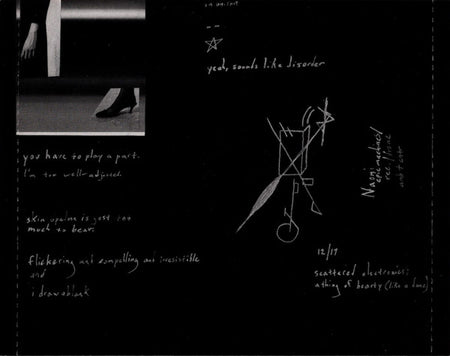 yeah, sounds like disorder
you have to play a part.
I'm too well-adjusted.
is just too
much to bear.
flickering and compelling and irresistible
and
i draw a blank
Naomi
12/17
scattered electronics:
a thing of beauty (like a